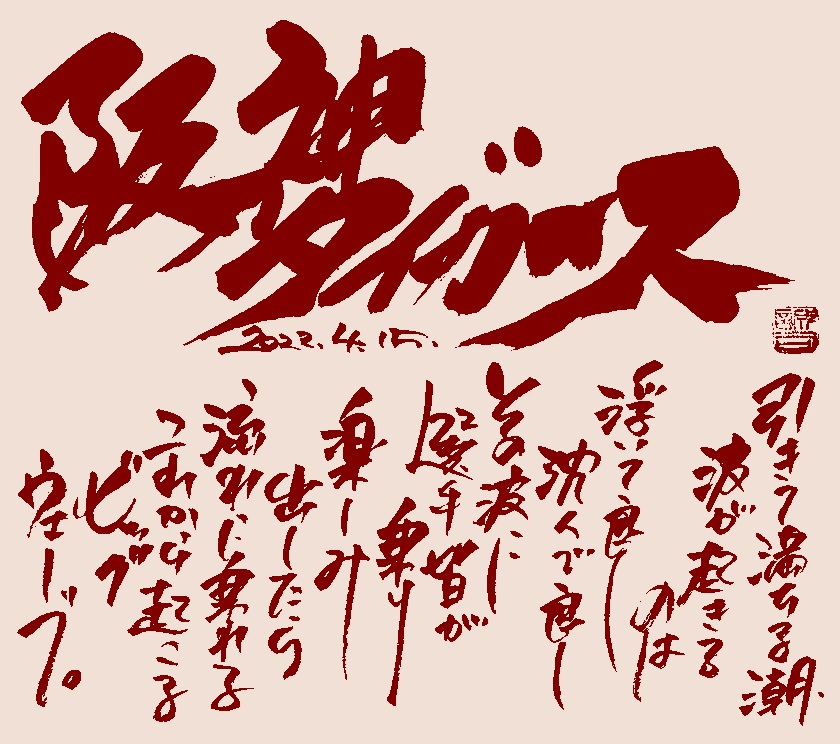 阪神
タイガース
2022.4.15.
引きて満ちる潮
波が起きる
のは
浮いて良し
沈んで良し
その波に
選手皆が
乗り
楽しみ
出したら
流れに乗れる
これから起こる
ビッグ
ウェーブ。